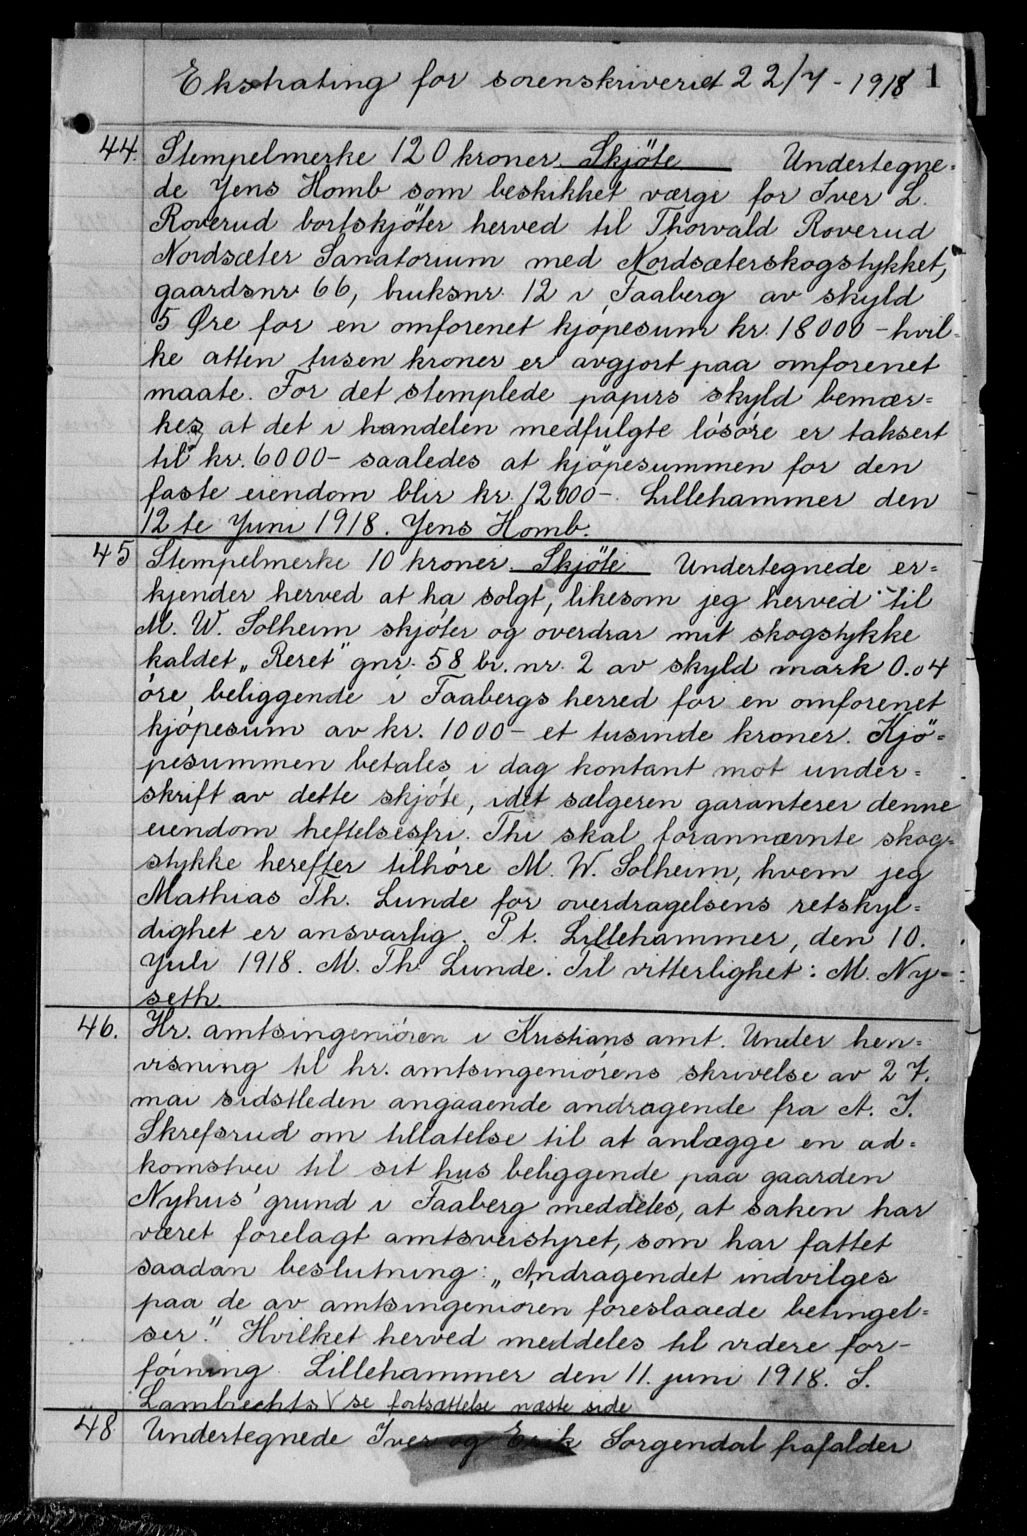 Ekstrating for sorenskriveriet 22/7 - 1918 1
44. Stempelmerke 120 kroner. Skjöte Undertegne-
de Jens Homb som beskikket værge for Iver L.
Roverud bortskjöter herved til Thorvald Roverud
Nordsæter Sanatorium med Nordsæterskogstykket,
gaardsnr 66, bruksnr. 12 i Faaberg av skyld
5 Øre for en omforenet kjöpesum kr. 18000 - hvil-
ke atten tusen kroner er avgjort paa omforenet
maate. For det stemplede papirs skyld bemær=
kes, at det i handelen medfulgte lösöre er taksert
til kr. 6000- saaledes at kjöpesummen for den
faste eiendom blir kr. 12000-. Lillehammer den
12te Juni 1918. Jens Homb.
45 Stempelmerke 10 kroner. Skjöte Undertegnede er=
kjender herved at ha solgt, likesom jeg herved til
M. W. Solheim skjöter og overdrar mit skogstykke
kaldet „Reret" gnr. 58 br. nr. 2 av skyld mark 0.04
öre, beliggende i Faabergs herred for en omforenet
kjöpesum av kr. 1000- et tusinde kroner. Kjö=
pesummen betales i dag kontant mot under=
skrift av dette skjöte, idet sælgeren garanterer denne
eiendom heftelsesfri. Thi skal forannævnte skog=
stykke herefter tilhöre M. W. Solheim, hvem jeg
Mathias Th. Lunde for overdragelsens retskyl=
dighet er ansvarlig. P t. Lillehammer, den 10.
Juli 1918. M. Th. Lunde. Til vitterlighet: M. Ny=
seth.
46. Hr. amtsingeniören i Kristians amt. Under hen=
visning til hr. amtsingeniörens skrivelse av 27.
mai sidstleden angaaende andragende fra A. J.
Skrefsrud om tillatelse til at anlægge en ad=
komstvei til sit hus beliggende paa gaarden
Nyhus' grund i Faaberg meddeles, at saken har
været forelagt amtsveistyret, som har fattet
saadan beslutning: „Andragendet indvilges
paa de av amtsingeniören foreslaaede betingel=
ser." Hvilket herved meddeles til videre for-
föining. Lillehammer den 11. juni 1918. S.
Lambrechts se fortsættelse næste side
48 Undertegnede Iver og Erik Sorgendal frafalder